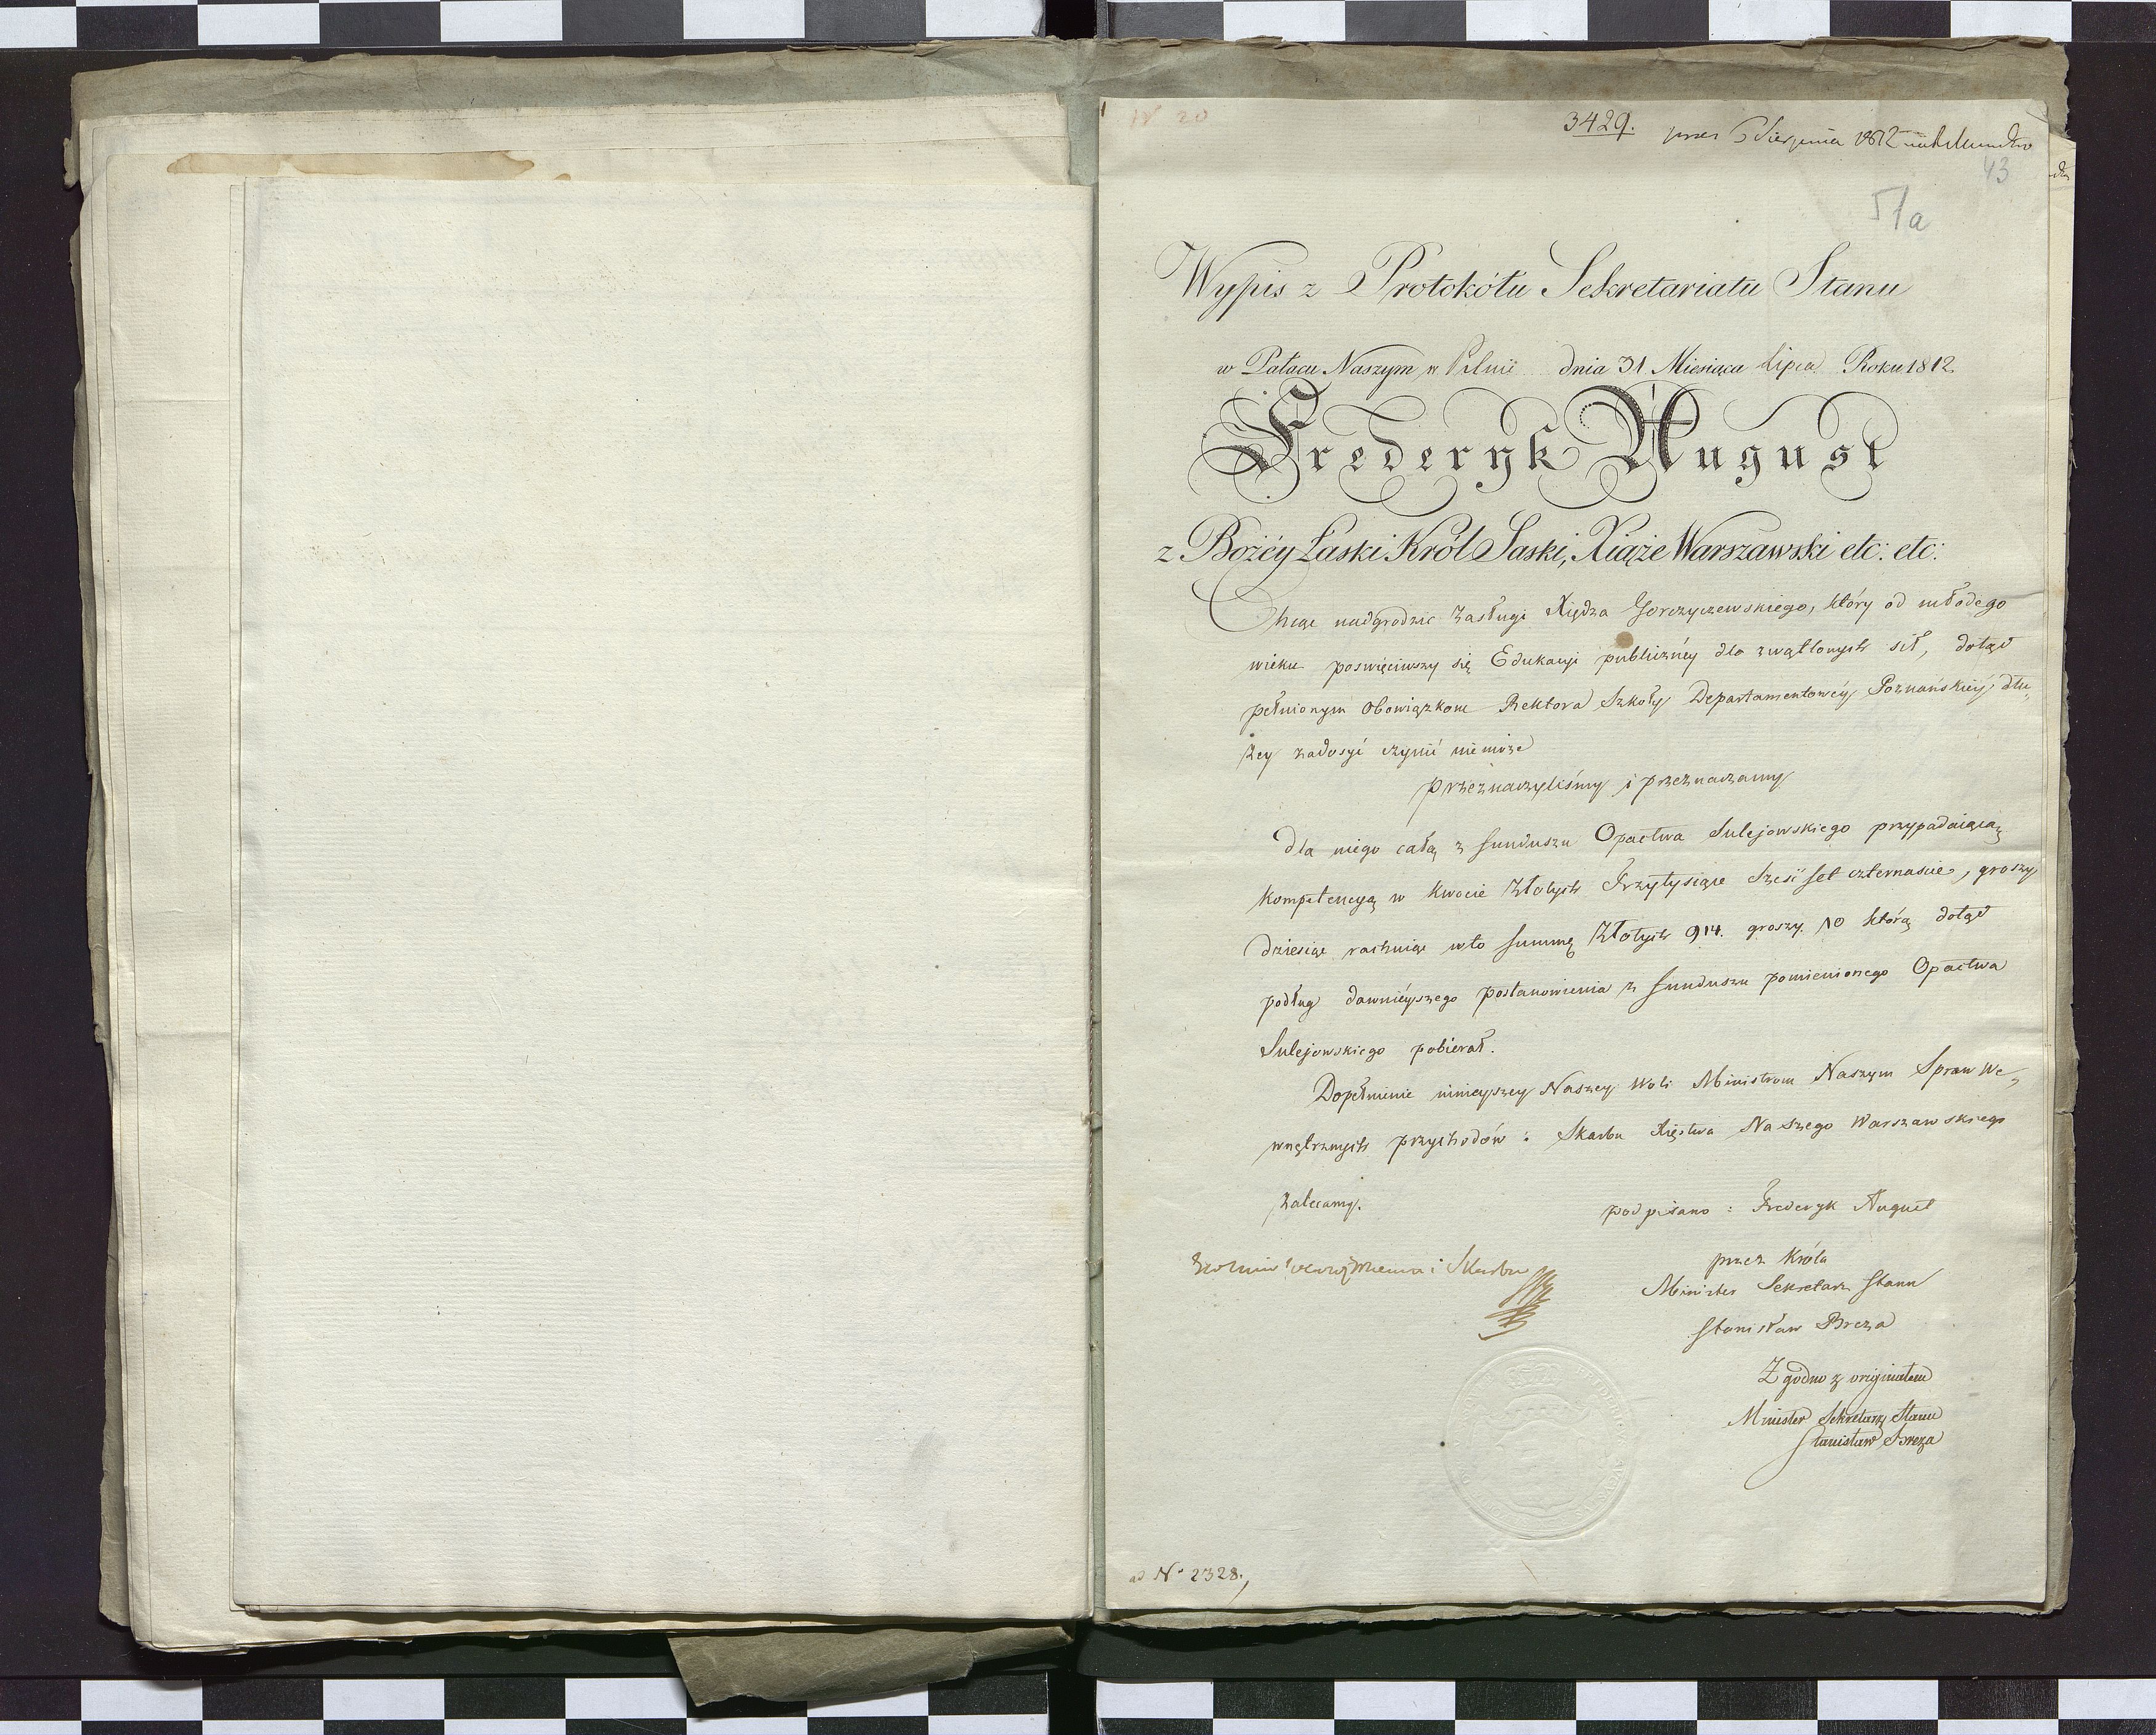 N 20
3429. 5 Sierpnia 1812
43
51a
Wypis z Protokółu Sekretariatu Stanu
w Pałacu Naszym w Pilnii dnia 31 Miesiąca Lipca Roku 1812.
Frederyk August
z Bożéy Łaski Król Saski, Xiąże Warszawski etc: etc:
Chcąc nadgrodzić zasługi Xiędza Gorczyczewskiego, który od młodego
wieku poswięciwszy się Edukacyi publicznéy dla zwątlonych sił, dotąd
pełnionym Obowiązkom Rektora Szkoły Departamentowéy Poznańskiéy dłu,
żey zadosyć czynić nie może
przeznaczyliśmy i przeznaczamy
dla niego całą z funduszu Opactwa Sulejowskiego przypadaiącą
kompetencyą w kwocie Złotych Trzytysiące Sześćset czternaście, groszy
dziesięć rachuiąc w to summę Złotych 914. groszy 10 którą dotąd
podług dawniéyszego postanowienia z funduszu pomienionego Opactwa
Sulejowskiego pobierał.
Dopełnienie ninieyszey Naszey Woli Ministrom Naszym Spraw We,
wnętrznych przychodów i Skarbu Xięstwa Naszego Warszawskiego
zalecamy.
podpisano: Frederyk August
przez Króla
Minister Sekretarz Stanu
Stanisław Breza
i Skarbu
Zgodno z originałem
Minister Sekretarz Stanu
Stanisław Breza
ad N. 2328.